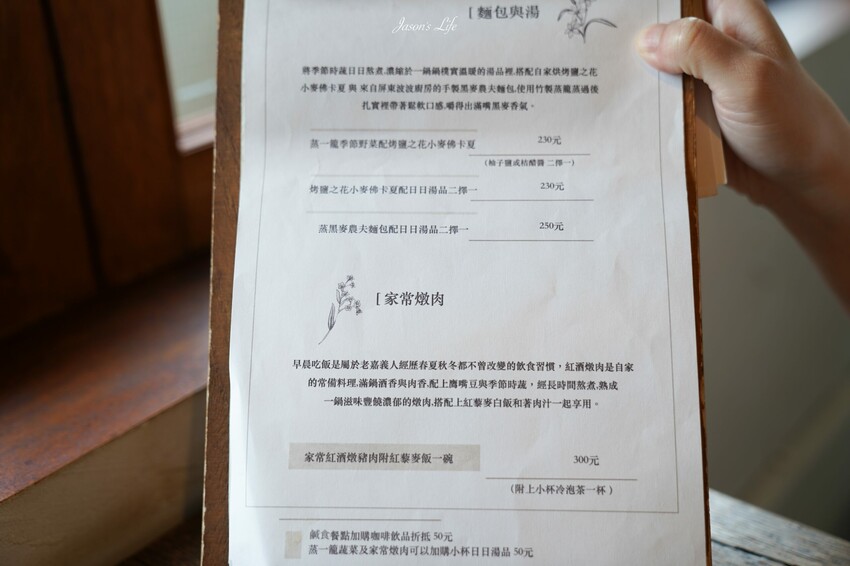 Jason's Life
[ 麵包與湯
將季節時蔬日日熬煮,濃縮於一鍋鍋樸實溫暖的湯品裡,搭配自家烘烤鹽之花
小麥佛卡夏 與 來自屏東波波廚房的手製黑麥農夫麵包,使用竹製蒸籠蒸過後
扎實裡帶著鬆軟口感,嚼得出滿嘴黑麥香氣。
蒸一籠季節野菜配烤鹽之花小麥佛卡夏 230元
(柚子鹽或桔醋醬 二擇一)
烤鹽之花小麥佛卡夏配日日湯品二擇一 230元
蒸黑麥農夫麵包配日日湯品二擇一 250元
[ 家常燉肉
早晨吃飯是屬於老嘉義人經歷春夏秋冬都不曾改變的飲食習慣，紅酒燉肉是自家
的常備料理,滿鍋酒香與肉香,配上鷹嘴豆與季節時蔬，經長時間熬煮,熟成
一鍋滋味豐饒濃郁的燉肉,搭配上紅藜麥白飯和著肉汁一起享用。
家常紅酒燉豬肉附紅藜麥飯一碗 300元
(附上小杯冷泡茶一杯)
鹹食餐點加購咖啡飲品折抵 50元
蒸一籠蔬菜及家常燉肉可以加購小杯日日湯品 50元